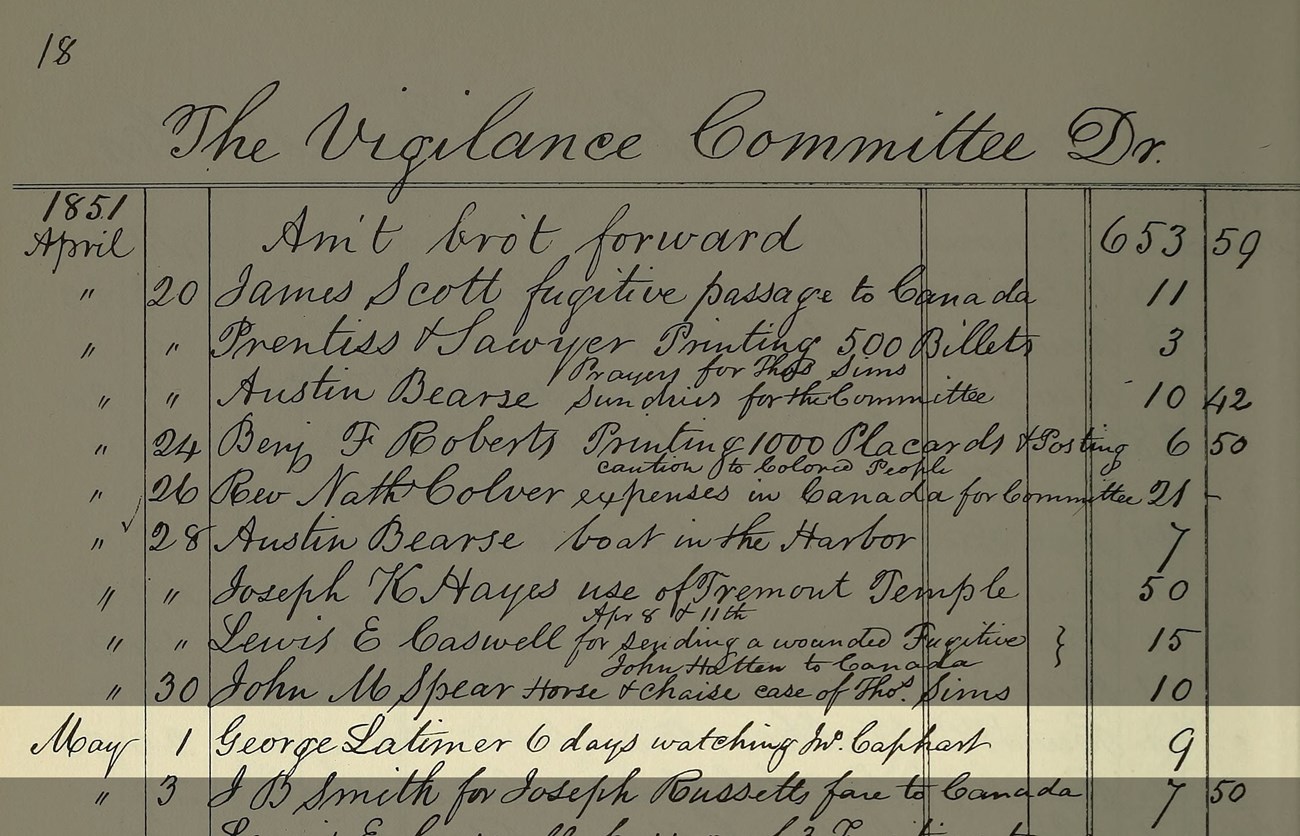 18
The Vigilance Committee Dr.
1851
April Am't bro't forward 653 59
" 20 James Scott fugitive passage to Canada 11
" " Prentiss & Sawyer Printing 500 Billets 3
Prayers for Thos Sims
" " Austin Bearse Sundries for the Committee 10 42
" 24 Benj F Roberts Printing 1000 Placards & Posting 6 50
caution to Colored People
" 26 Rev Nathl Colver expenses in Canada for Committee 21 -
" 28 Austin Bearse boat in the Harbor 7
" " Joseph K Hayes use of Tremont Temple 50
Apr 8 & 11th
" " Lewis E Caswell for sending a wounded Fugitive } 15
John Hatten to Canada
" 30 John M Spear Horse & chaise case of Thos. Sims 10
May 1 George Latimer 6 days watching Jno. Caphart 9
" 3 J B Smith for Joseph Russetts fare to Canada 7 50